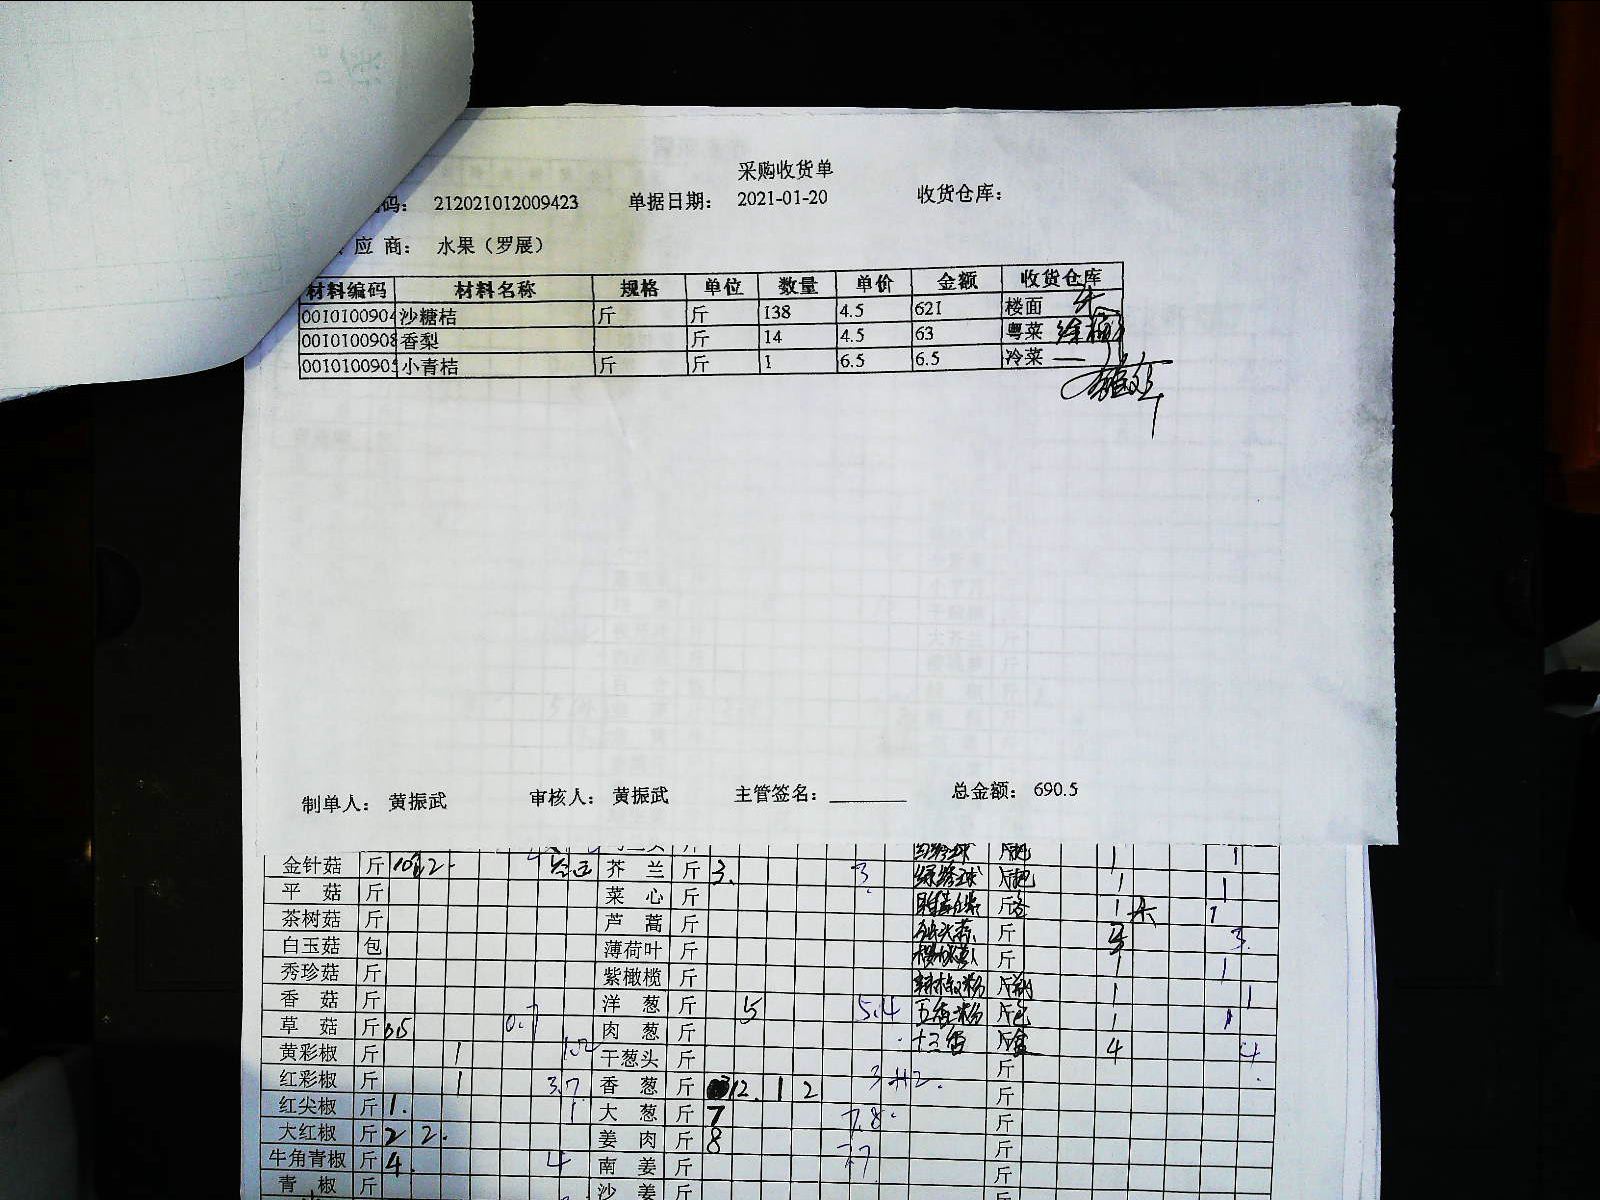 采购收货单
码： 212021012009423 单据日期： 2021-01-20 收货仓库：
应 商： 水果（罗展）
材料编码 材料名称 规格 单位 数量 单价 金额 收货仓库
0010100904 沙糖桔 斤 斤 138 4.5 621 楼面
0010100908 香梨 斤 14 4.5 63 粤菜
0010100905 小青桔 斤 斤 1 6.5 6.5 冷菜
制单人： 黄振武 审核人： 黄振武 主管签名： 总金额： 690.5
金针菇 斤 芥 兰 斤 3. 3 1 1
平 菇 斤 菜 心 斤 1 1
茶树菇 斤 芦 蒿 斤 斤 1 1
白玉菇 包 薄荷叶 斤 斤 3.
秀珍菇 斤 紫橄榄 斤 斤 1 1
香 菇 斤 洋 葱 斤 5 5.4 五香粉 1 1
草 菇 斤 0.5 0.7 肉 葱 斤 十三香 4 4
黄彩椒 斤 1 干葱头 斤 斤
红彩椒 斤 1 3.7 香 葱 斤 12. 1 2 斤
红尖椒 斤 1. 1 大 葱 斤 7 7.8 斤
大红椒 斤 2 2. 姜 肉 斤 8 斤
牛角青椒 斤 4. 4 南 姜 斤 7.7 斤
青 椒 斤 沙 姜 斤 斤